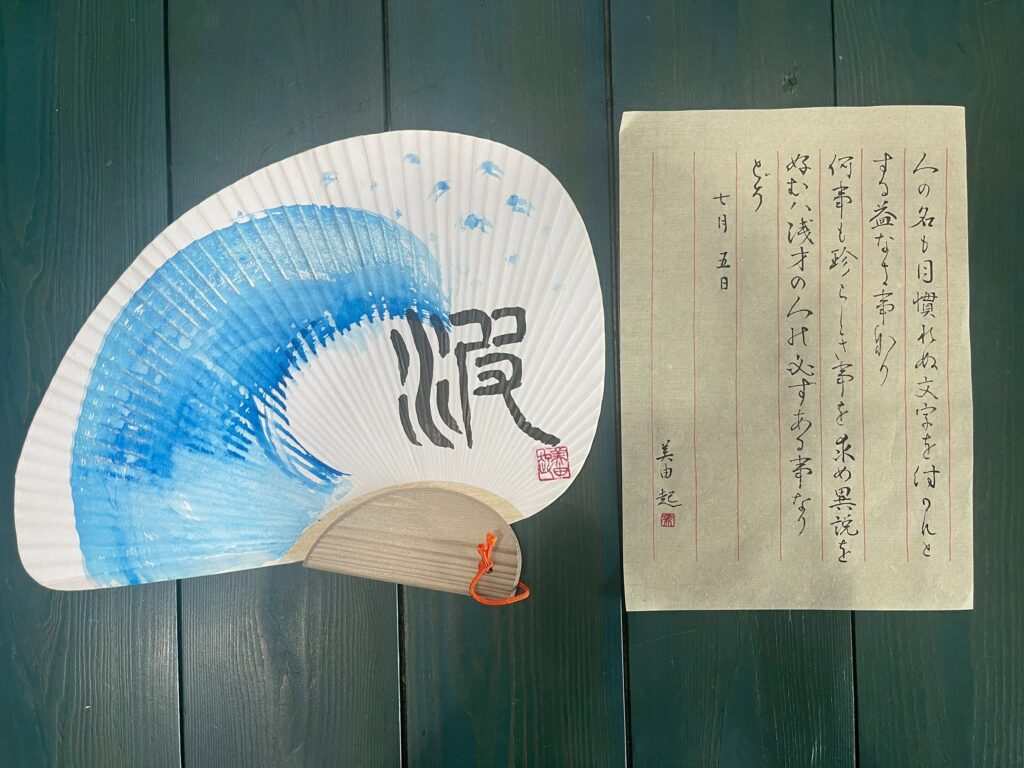 波
人の名も目慣れぬ文字を付かんと
する益なき事なり
何事も珍らしき事を求め異説を
好むハ浅才の人の必ずある事なり
とぞ
七月 五日
美由起